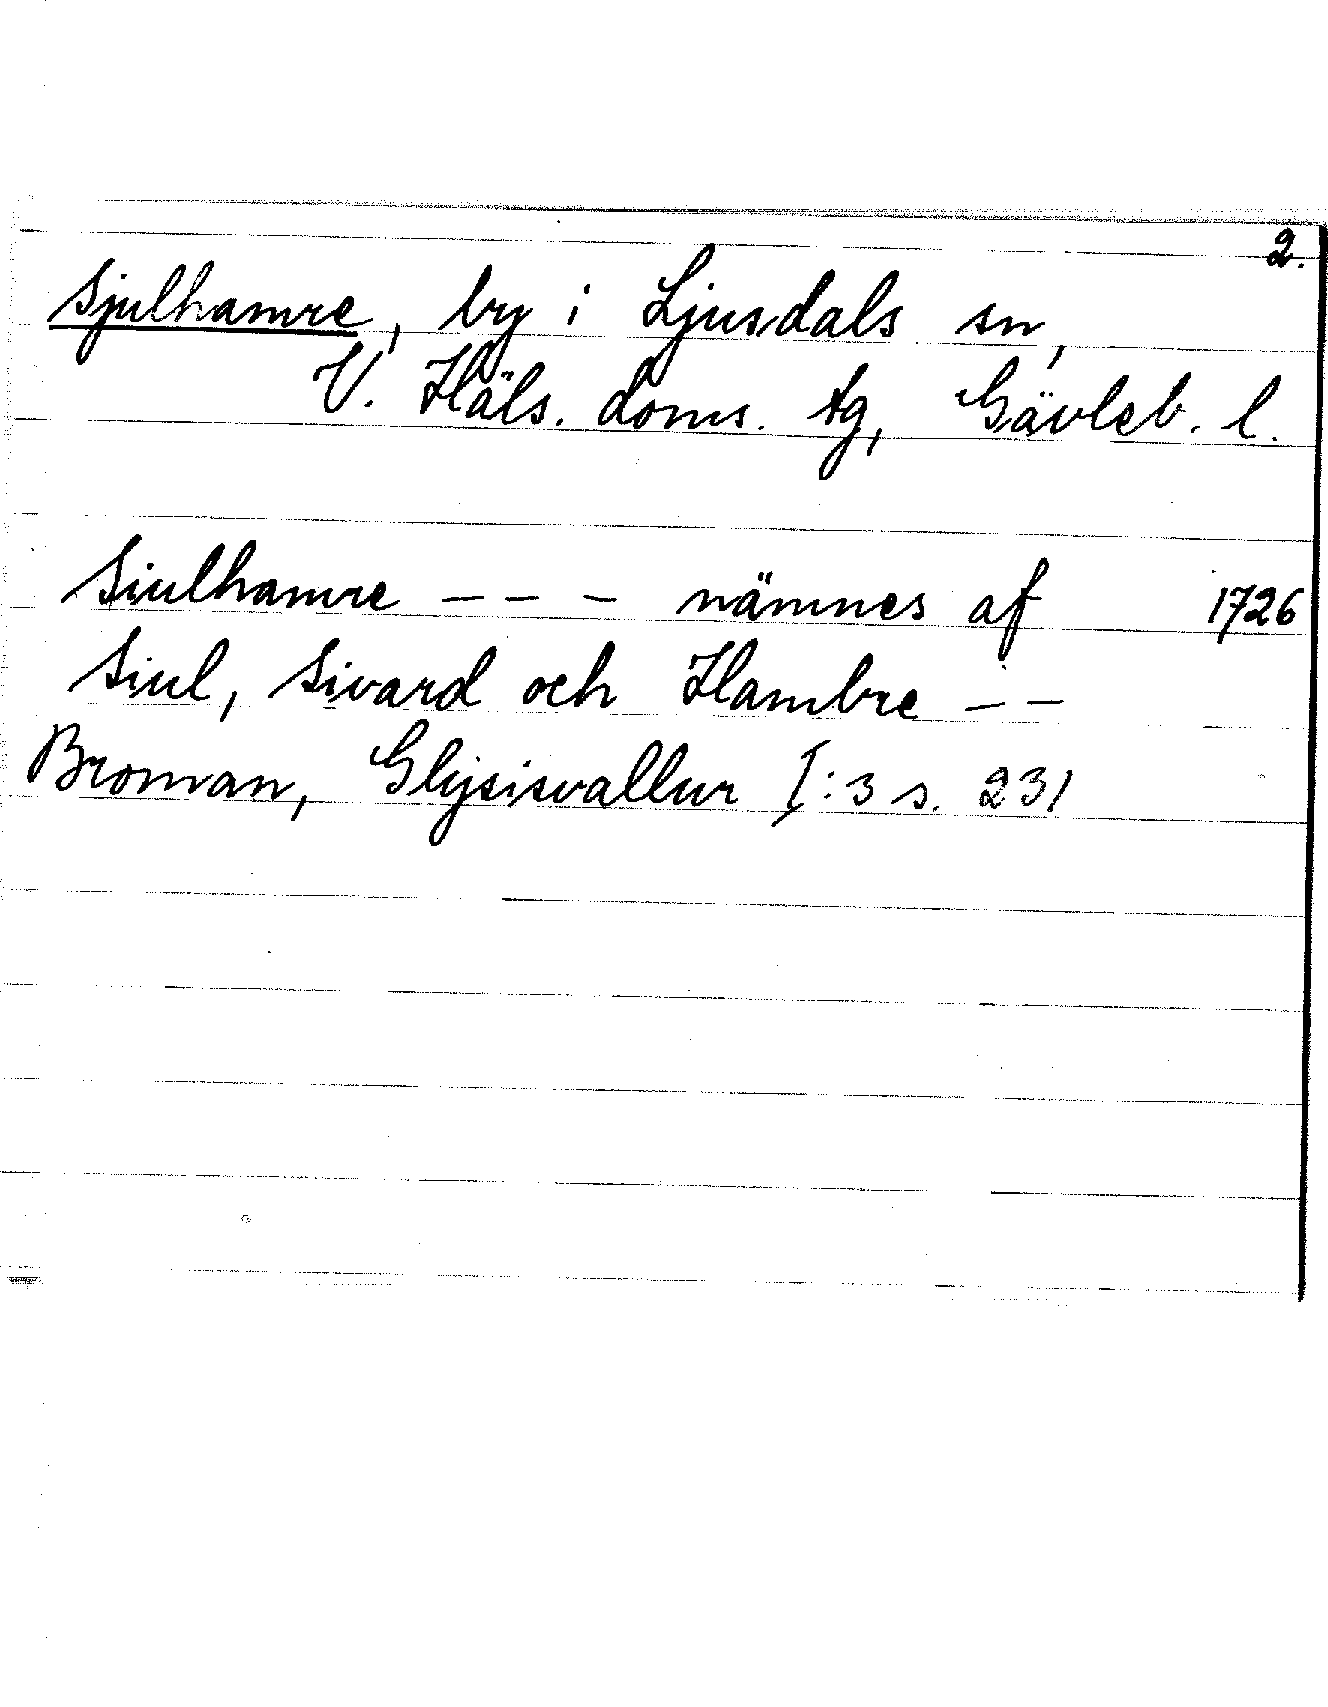 2.
Sjulhamre, by i Ljusdals sn,
V. Häls. doms. tg, Gävleb. l.
Siulhamre --- nämnes af 1726
Siul, Sivard och Hambre --
Broman, Glysisvallur I:3 s. 231